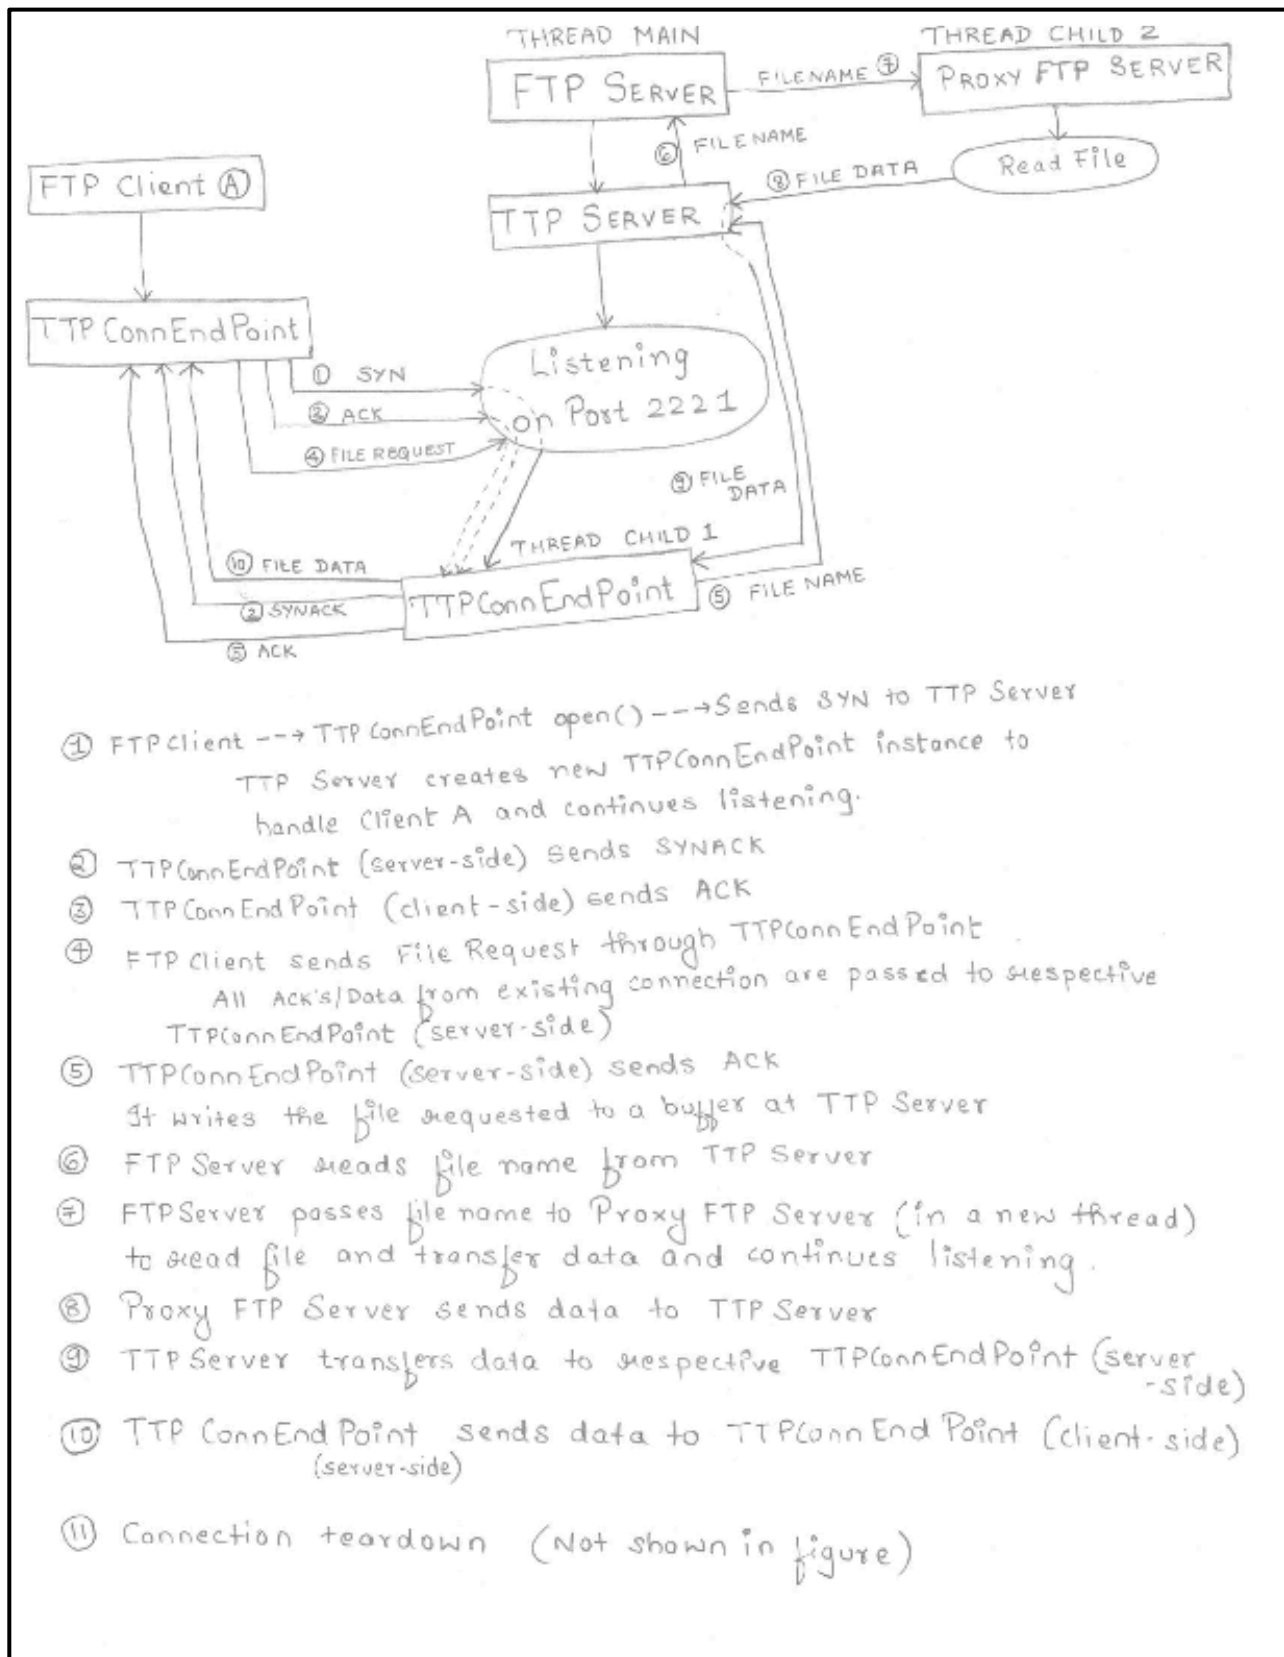 THREAD MAIN
THREAD CHILD 2
FTP SERVER
FILENAME ⑦
PROXY FTP SERVER
⑥ FILE NAME
Read File
⑧ FILE DATA
FTP Client Ⓐ
TTP SERVER
TTP ConnEndPoint
Listening
on Port 2221
① SYN
③ ACK
④ FILE REQUEST
⑨ FILE
DATA
THREAD CHILD 1
⑩ FILE DATA
TTPConnEndPoint
⑤ FILE NAME
② SYNACK
⑤ ACK
① FTP Client --→ TTP ConnEndPoint open() ---→ Sends SYN to TTP Server
TTP Server creates new TTPConnEndPoint instance to
handle Client A and continues listening.
② TTPConnEndPoint (server-side) sends SYNACK
③ TTPConnEndPoint (client-side) sends ACK
④ FTP Client sends File Request through TTPConnEndPoint
All Ack's/Data from existing connection are passed to respective
TTPConnEndPoint (server-side)
⑤ TTPConnEndPoint (server-side) sends ACK
It writes the file requested to a buffer at TTP Server
⑥ FTP Server reads file name from TTP Server
⑦ FTPServer passes file name to Proxy FTP Server (in a new thread)
to read file and transfer data and continues listening.
⑧ Proxy FTP Server sends data to TTP Server
⑨ TTP Server transfers data to respective TTPConnEndPoint (server
-side)
⑩ TTP ConnEnd Point sends data to TTPConnEnd Point (client-side)
(server-side)
⑪ Connection teardown (Not shown in figure)